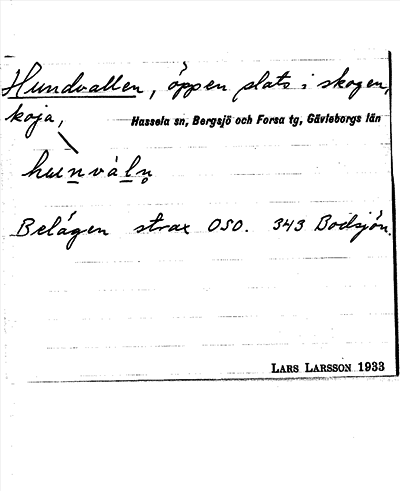 Hundvallen, öppen plats i skogen,
koja,
Hassela sn, Bergsjö och Forsa tg, Gävleborgs län
hun̲vàl̲n̥
Belägen strax OSO. 343 Bodsjön.
LARS LARSSON 1933